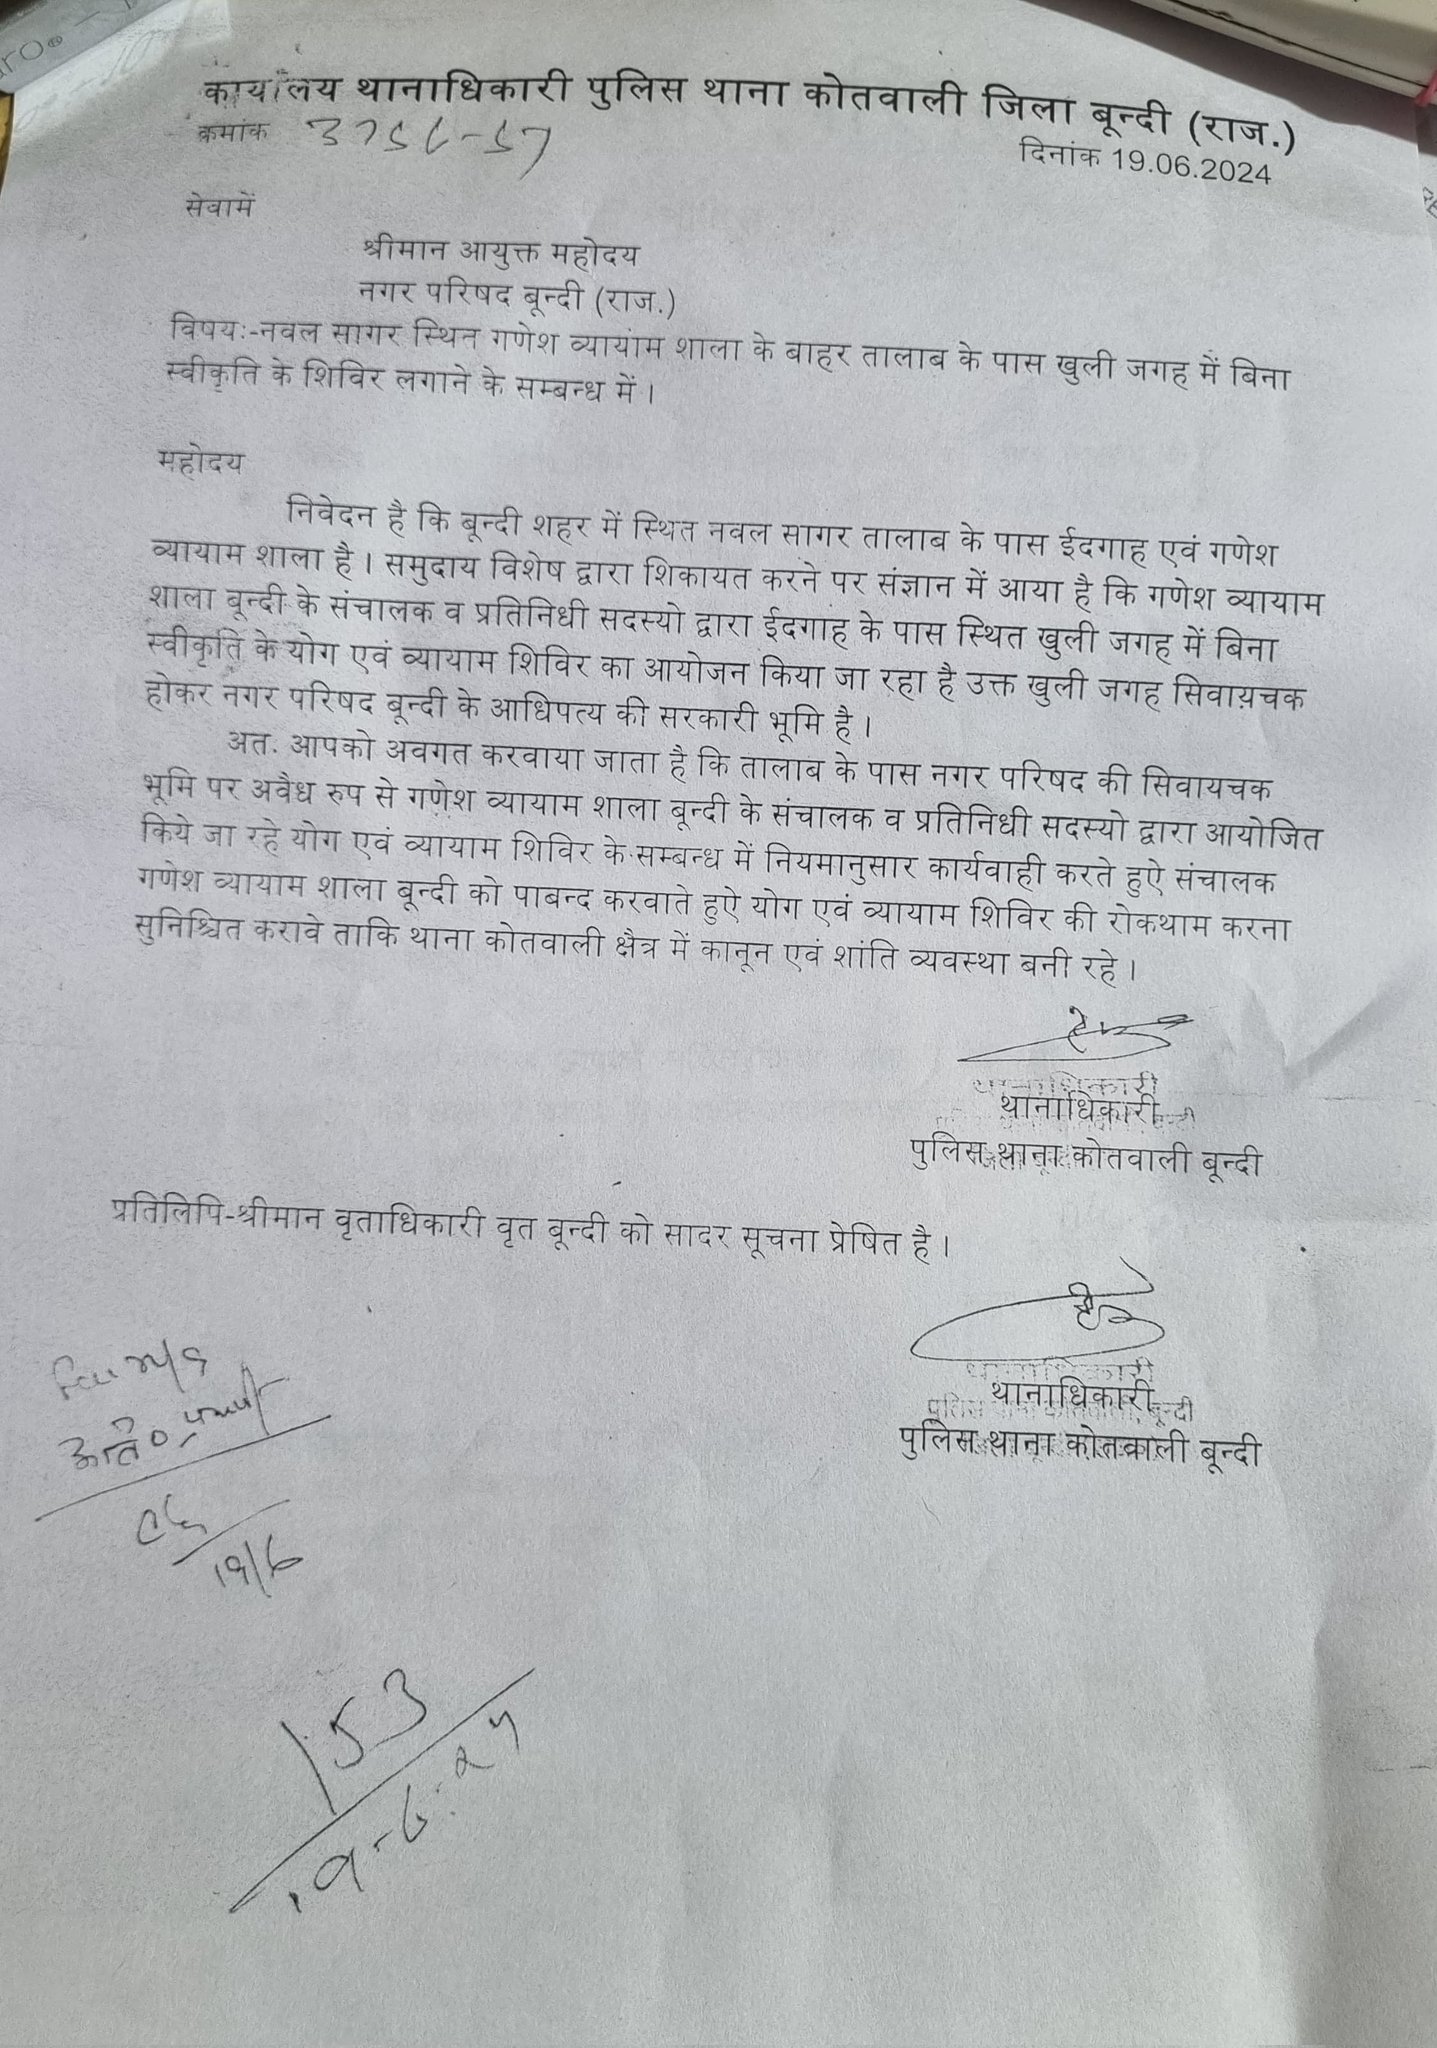 कार्यालय थानाधिकारी पुलिस थाना कोतवाली जिला बून्दी (राज.)
क्रमांक 3756-57
दिनांक 19.06.2024
सेवामें
श्रीमान आयुक्त महोदय
नगर परिषद बून्दी (राज.)
विषयः-नवल सागर स्थित गणेश व्यायाम शाला के बाहर तालाब के पास खुली जगह में बिना
स्वीकृति के शिविर लगाने के सम्बन्ध में।
महोदय
निवेदन है कि बून्दी शहर में स्थित नवल सागर तालाब के पास ईदगाह एवं गणेश
व्यायाम शाला है। समुदाय विशेष द्वारा शिकायत करने पर संज्ञान में आया है कि गणेश व्यायाम
शाला बून्दी के संचालक व प्रतिनिधी सदस्यो द्वारा ईदगाह के पास स्थित खुली जगह में बिना
स्वीकृति के योग एवं व्यायाम शिविर का आयोजन किया जा रहा है उक्त खुली जगह सिवाय़चक
होकर नगर परिषद बून्दी के आधिपत्य की सरकारी भूमि है।
अतः आपको अवगत करवाया जाता है कि तालाब के पास नगर परिषद की सिवायचक
भूमि पर अवैध रुप से गणेश व्यायाम शाला बून्दी के संचालक व प्रतिनिधी सदस्यो द्वारा आयोजित
किये जा रहे योग एवं व्यायाम शिविर के सम्बन्ध में नियमानुसार कार्यवाही करते हुऐ संचालक
गणेश व्यायाम शाला बून्दी को पाबन्द करवाते हुऐ योग एवं व्यायाम शिविर की रोकथाम करना
सुनिश्चित करावे ताकि थाना कोतवाली क्षैत्र में कानून एवं शांति व्यवस्था बनी रहे।
थानाधिकारी
थानाधिकारी
पुलिस थाना कोतवाली बून्दी
प्रतिलिपि-श्रीमान वृताधिकारी वृत बून्दी को सादर सूचना प्रेषित है।
थानाधिकारी
थानाधिकारी
पुलिस थाना कोतवाली बून्दी
19/6
153
19-6-24